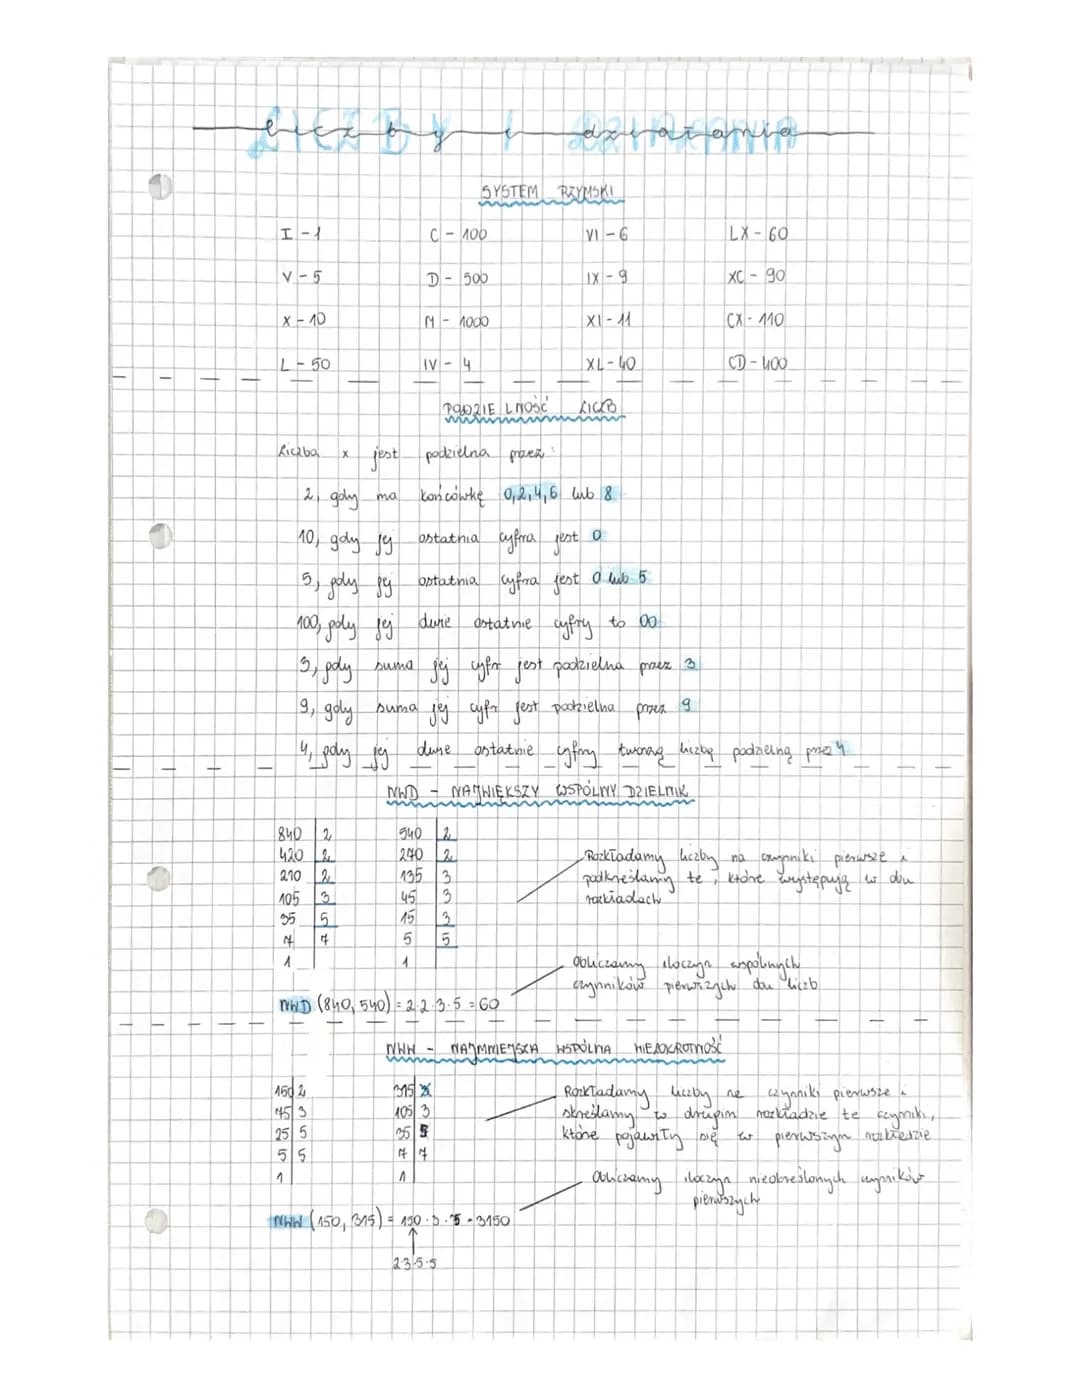 liczby i działania
SYSTEM RZYMSKI
I - 1 C - 100 VI - 6 LX - 60
V - 5 D - 500 IX - 9 XC - 90
X - 10 M - 1000 XI - 11 CX - 110
L - 50 IV - 4 XL - 40 CD - 400
PODZIELNOŚĆ LICZB
Liczba x jest podzielna przez:
2, gdy ma końcówkę 0,2,4,6 lub 8
10, gdy jej ostatnia cyfra jest 0
5, gdy jej ostatnia cyfra jest 0 lub 5
100, gdy jej dwie ostatnie cyfry to 00
3, gdy suma jej cyfr jest podzielna przez 3
9, gdy suma jej cyfr jest podzielna przez 9
4, gdy jej dwie ostatnie cyfry tworzą liczbę podzielną przez 4
NWD - NAJWIĘKSZY WSPÓLNY DZIELNIK
840 2 540 2
420 2 270 2
210 2 135 3
105 3 45 3
35 5 15 3
7 7 5 5
1 1
Rozkładamy liczby na czynniki pierwsze i
podkreślamy te, które występują w obu
rozkładach
Obliczamy iloczyn wspólnych
czynników pierwszych obu liczb
NWD (840, 540) = 2·2·3·5 = 60
NWW - NAJMNIEJSZA WSPÓLNA WIELOKROTNOŚĆ
150 2 315 3
75 3 105 3
25 5 35 5
5 5 7 7
1 1
Rozkładamy liczby na czynniki pierwsze i
skreślamy w drugim rozkładzie te czynniki,
które pojawiły się w pierwszym rozkładzie
Obliczamy iloczyn nieskreślonych czynników
pierwszych
NWW (150, 315) = 150 · 3 · 7 = 3150
2·3·5·5